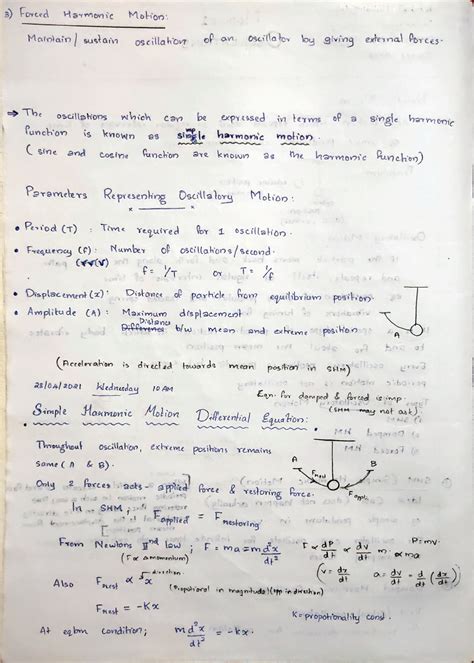 3) Forced Harmonic Motion:
Maintain/ sustain oscillation of an oscillator by giving external forces.
⇒ The oscillations which can be expressed in terms of a single harmonic
function is known as simple harmonic motion.
( sine and cosine function are known as the harmonic function)
Parameters Representing Oscillatory Motion:
• Period (T) : Time required for 1 oscillation.
• Frequency (f) : Number of oscillations/second.
f = 1/T or T = 1/f
• Displacement (x): Distance of particle from equilibrium position.
• Amplitude (A) : Maximum displacement.
Distance
Difference b/w mean and extreme position.
A
(Acceleration is directed towards mean position in SHM)
28/04/2021 Wednesday 10 AM
Eqn. for damped & forced is imp.
(SHM may not ask).
• Simple Harmonic Motion Differential Equation:
Throughout oscillation, extreme positions remains
same (A & B).
A B
Frest Fapplied
Only 2 forces acts - applied force & restoring force.
In SHM; Fapplied = Frestoring
From Newtons IInd law ; F = ma = m d²x/dt²
(F ∝ momentum)
F ∝ dP/dt ∝ dv/dt m ∝ ma
P = mv
(v = dx/dt a = dv/dt = d/dt (dx/dt))
Also Frest ∝ -x
direction
(Propotional in magnitude) (opp in direction)
Frest = -Kx
K = propotionality const.
At eqbm condition; m d²x/dt² = -kx.